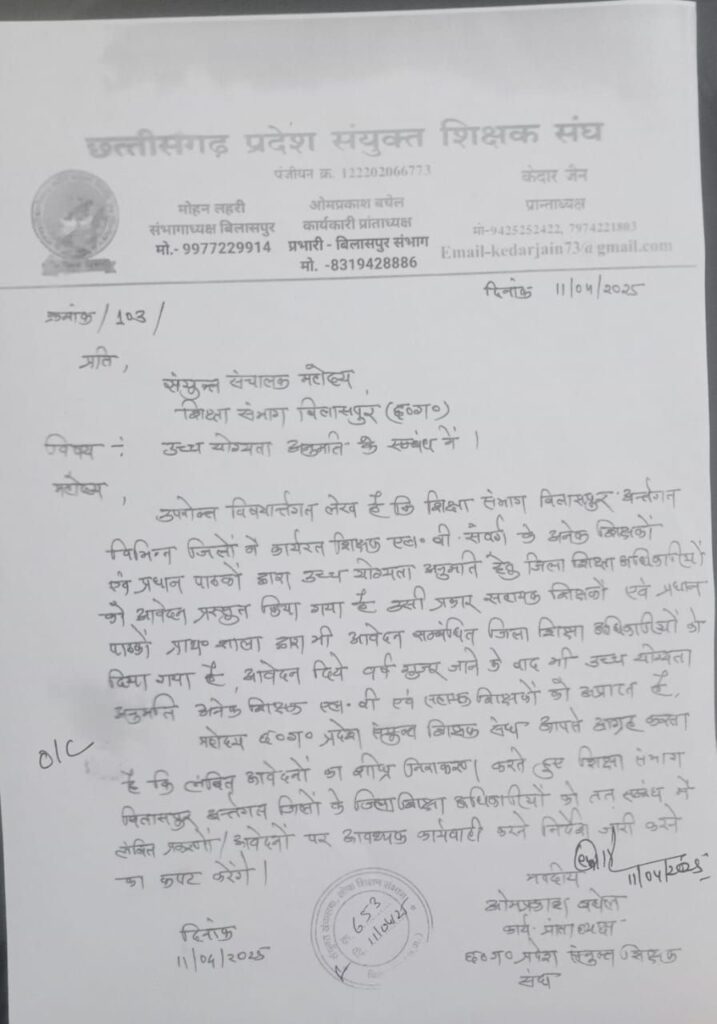 छत्तीसगढ़ प्रदेश संयुक्त शिक्षक संघ
पंजीयन क्र. 122202066773
मोहन लहरी
संभागाध्यक्ष बिलासपुर
मो.- 9977229914
ओमप्रकाश बघेल
कार्यकारी प्रांताध्यक्ष
प्रभारी - बिलासपुर संभाग
मो. -8319428886
केदार जैन
प्रान्ताध्यक्ष
मो-9425252422, 7974221803
Email-kedarjain73@gmail.com
दिनांक 11/04/2025
क्रमांक / 103 /
प्रति,
संयुक्त संचालक महोदय,
शिक्षा संभाग बिलासपुर (छ०ग०)
विषय -: उच्च योग्यता अनुमति के सम्बंध में ।
महोदय,
उपरोक्त विषयार्न्तगत लेख है कि शिक्षा संभाग बिलासपुर अर्न्तगत
विभिन्न जिलों में कार्यरत शिक्षक एल० बी संवर्ग के अनेक शिक्षकों
एवं प्रधान पाठकों द्वारा उच्च योग्यता अनुमति हेतु जिला शिक्षा अधिकारीयों
को आवेदन प्रस्तुत किया गया है उसी प्रकार सहायक शिक्षकों एवं प्रधान
पाठकों प्राथ० शाला द्वारा भी आवेदन सम्बंधित जिला शिक्षा अधिकारीयों को
दिया गया है, आवेदन दिये वर्ष गुजर जाने के बाद भी उच्च योग्यता
अनुमति अनेक शिक्षक एल० बी एवं सहायक शिक्षकों को अप्राप्त है,
महोदय छ०ग० प्रदेश संयुक्त शिक्षक संघ आपसे आग्रह करता
है कि लंबित आवेदनों का शीघ्र निराकरण करते हुए शिक्षा संभाग
बिलासपुर अर्न्तगत जिलों के जिला शिक्षा अधिकारीयों को तत सम्बंध में
लंबित प्रकरणों/आवेदनों पर आवश्यक कार्यवाही करने निर्देश जारी करने
का कष्ट करेंगे ।
O/C
भवदीय
11/04/2025
ओमप्रकाश बघेल
कार्य. प्रांताध्यक्ष
छ०ग० प्रदेश संयुक्त शिक्षक
संघ
दिनांक
11/04/2025
653
11/04/25